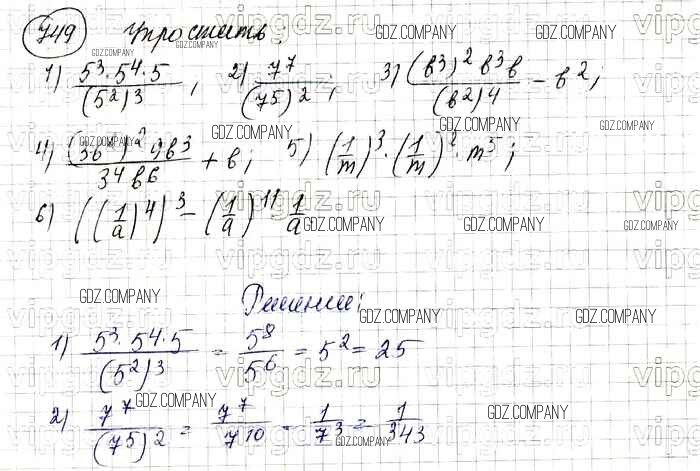 749 Упростить:
1) (5³·5⁴·5)/(5²)³, 2) 7⁷/(7⁵)²; 3) ((b³)² b³b)/(b²)⁴ − b²;
4) ((3b²)² 9b³)/(3⁴b⁶) + b; 5) (1/m)³·(1/m)²·m⁵;
6) ((1/a)⁴)³ − (1/a)¹¹ 1/a
Решение:
1) (5³·5⁴·5)/(5²)³ = 5⁸/5⁶ = 5² = 25
2) 7⁷/(7⁵)² = 7⁷/7¹⁰ = 1/7³ = 1/343
GDZ.COMPANY
vipgdz.ru